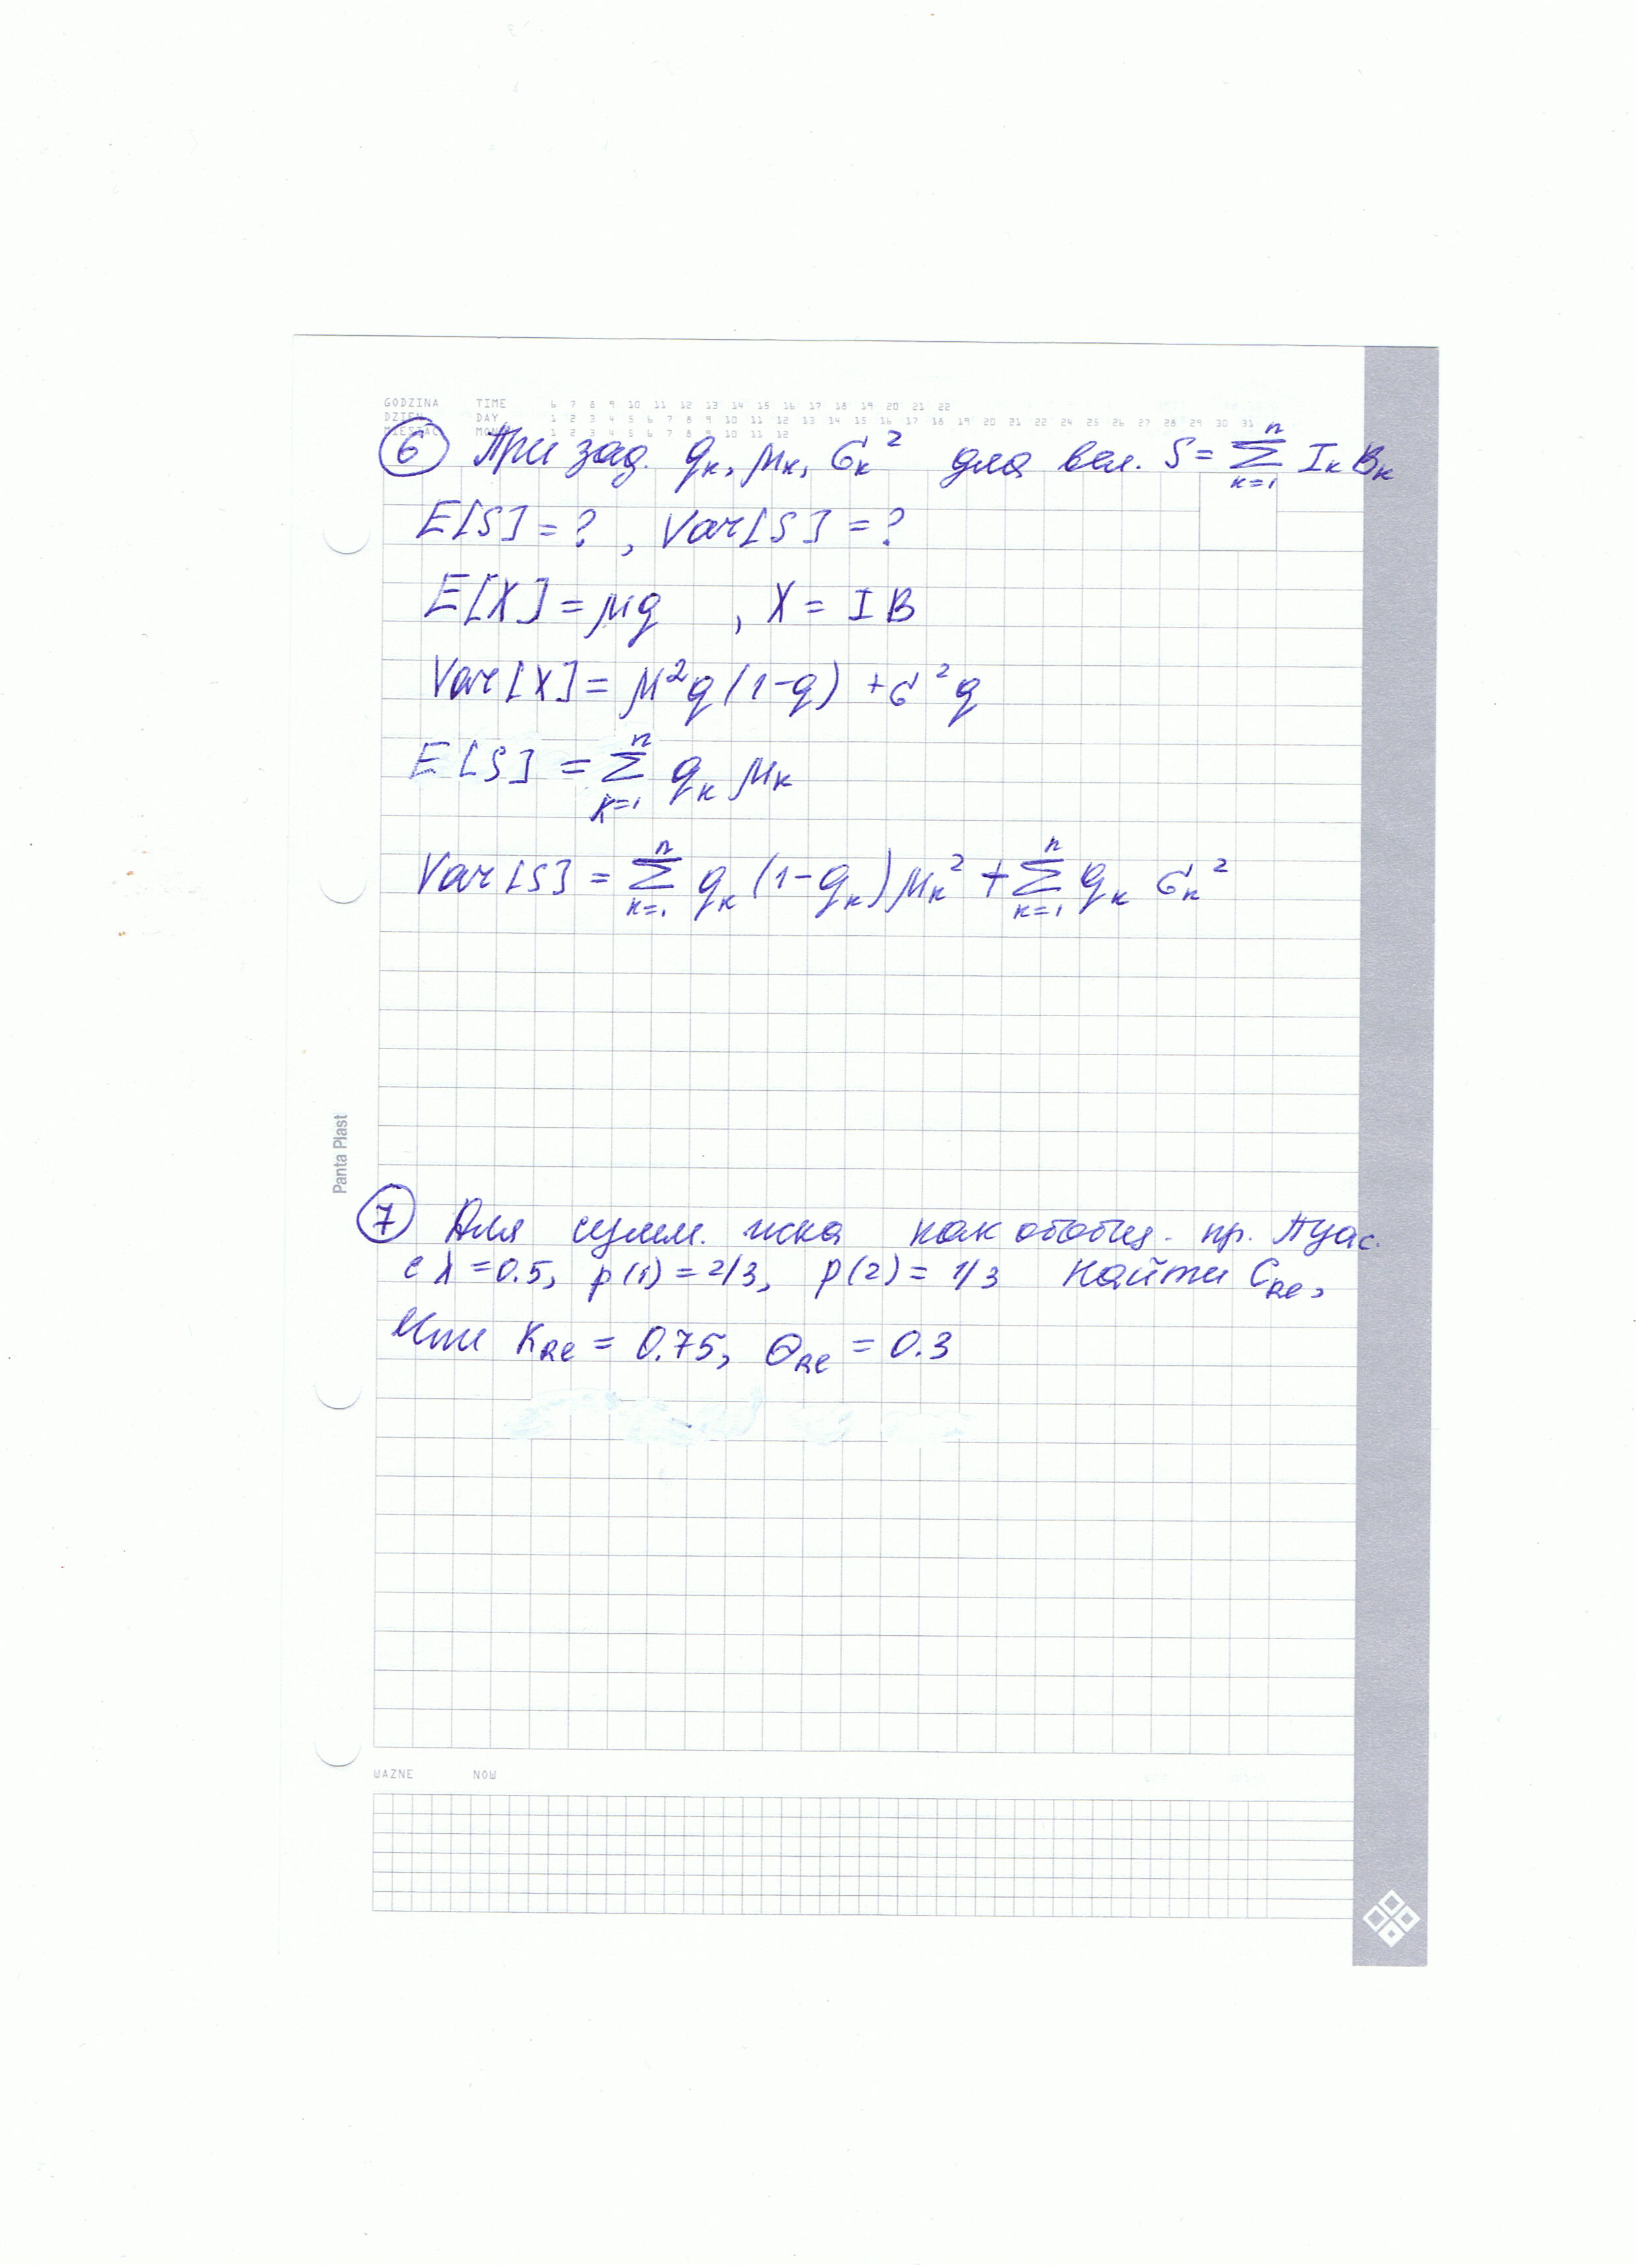 GODZINA TIME 6 7 8 9 10 11 12 13 14 15 16 17 18 19 20 21 22
DZIEŃ DAY 1 2 3 4 5 6 7 8 9 10 11 12 13 14 15 16 17 18 19 20 21 22 24 25 26 27 28 29 30 31
MIESIĄC MON 1 2 3 4 5 6 7 8 9 10 11 12
6 При зад. qₖ, μₖ, σₖ² для вел. S = Σₖ₌₁ⁿ IₖBₖ
E[S] = ?, Var[S] = ?
E[X] = μq , X = IB
Var[X] = μ²q(1-q) + σ²q
E[S] = Σₖ₌₁ⁿ qₖ μₖ
Var[S] = Σₖ₌₁ⁿ qₖ(1-qₖ)μₖ² + Σₖ₌₁ⁿ qₖ σₖ²
Panta Plast
7 Для сумм. иска как обобщ. пр. Пуас.
с λ = 0.5, p(1) = 2/3, p(2) = 1/3 Найти C_Re,
K_Re = 0.75, Θ_Re = 0.3
WAŻNE NOW